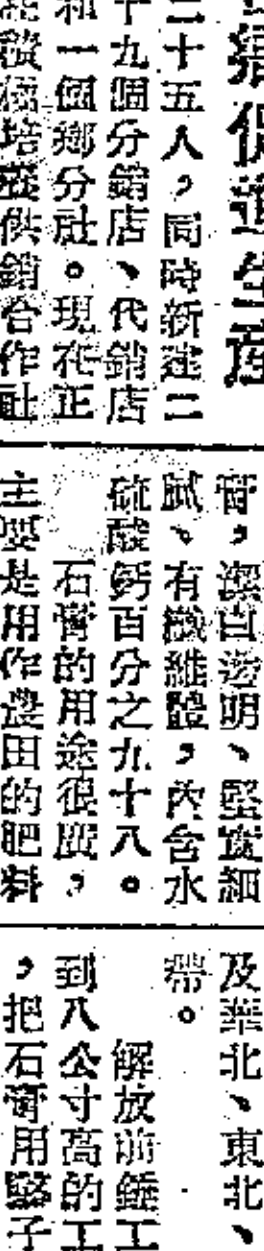 保護生產
二十五人，同時新建二
十九個分銷店、代銷店
和一個鄉分社。現在正
積極培養供銷合作社
膏，潔白透明、堅實細
膩、有纖維體，內含水
硫酸鈣百分之九十八。
石膏的用途很廣，
主要是用作農田的肥料
及華北、東北、
帶。
解放前錘工
到八公寸高的工
，把石膏用鏨子